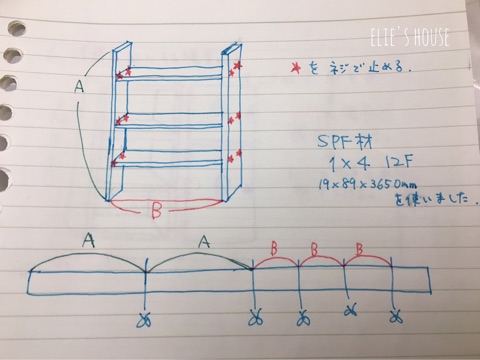 ELIE'S HOUSE
★をネジで止める.
A
SPF材
1×4 12F
19×89×3650mm
を使いました.
B
A A B B B